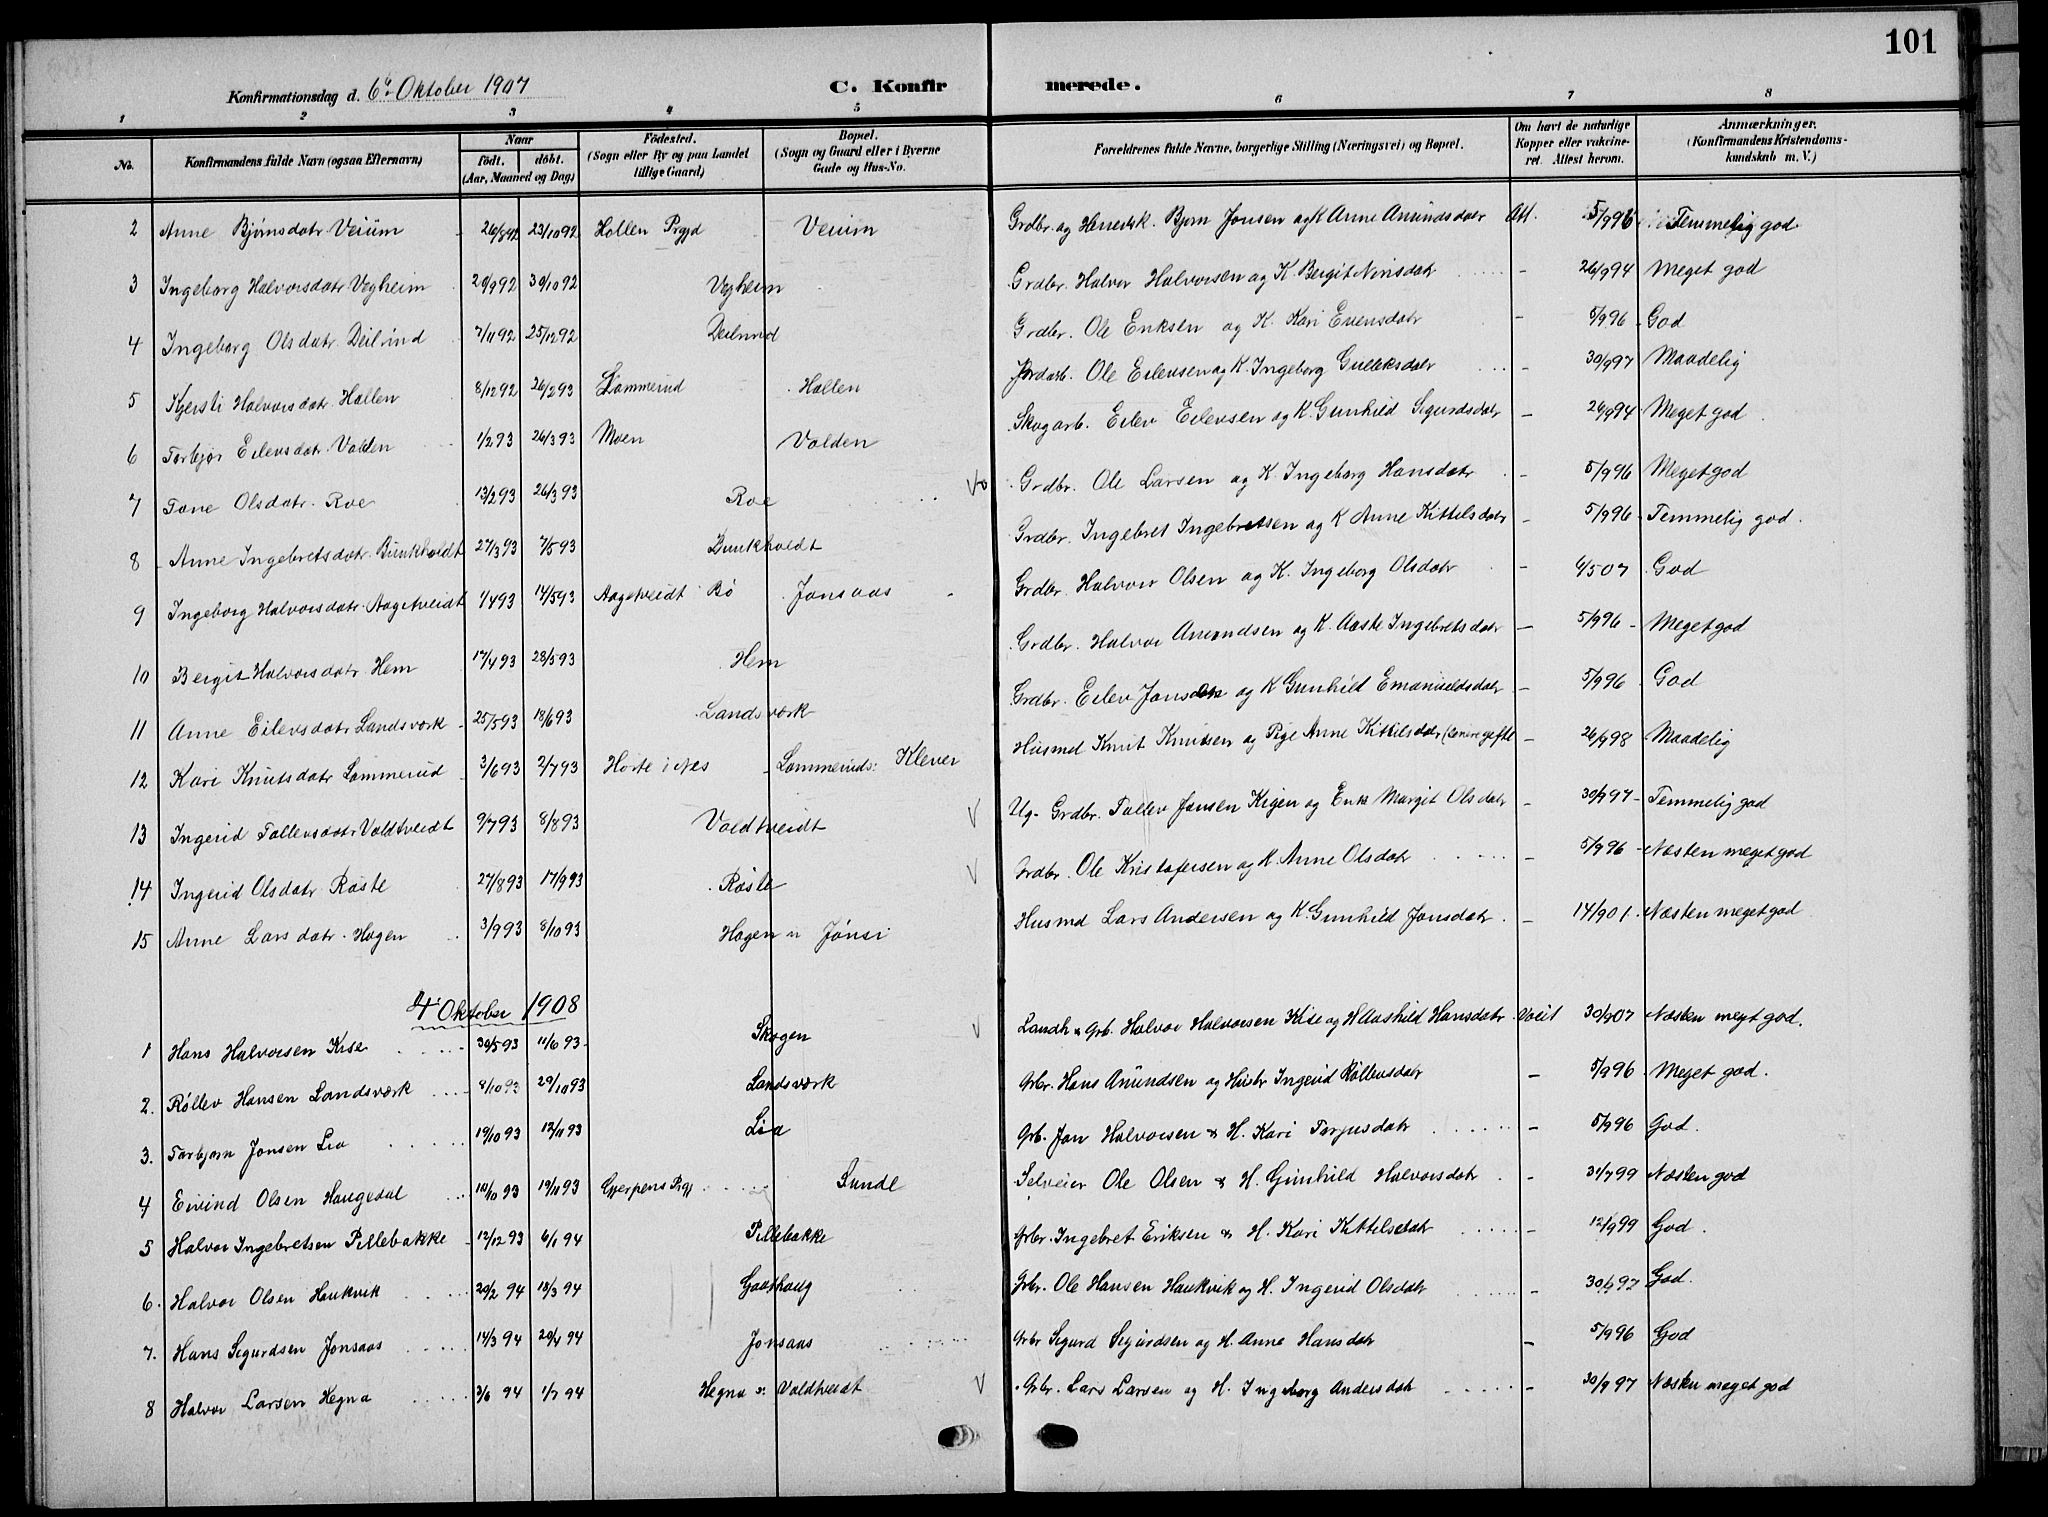 101
Konfirmationsdag d. 6te Oktober 1907 C. Konfir merede.
1 2 3 4 5 6 7 8
No. Konfirmandens fulde Navn (ogsaa Efternavn) Naar født. døbt. (Aar, Maaned og Dag) Fødested. (Sogn eller By og paa Landet tillige Gaard) Bopæl. (Sogn og Gaard eller i Byerne Gade og Hus-No. Forældrenes fulde Navne, borgerlige Stilling (Næringsvei) og Bopæl. Om havt de naturlige Kopper eller vakcineret. Attest herom. Anmærkninger. (Konfirmandens Kristendomskundskab m. V.)
2 Anne Bjørnsdatr Veium 23/10 92 Hollen Prgjd Veium Grdbr. og Bjørn Jonsen og K Anne Amundsdatr Att. 5/9 96 Temmelig god
3 Ingeborg Halvorsdatr Vegheim 20/9 92 30/10 92 Vegheim Grdbr. Halvor Halvorsen og K. Bergit Nirisdatr - 26/9 94 Meget god
4 Ingeborg Olsdatr. Deilrind 7/11 92 25/12 92 Deilrind Grdbr. Ole Eriksen og K. Kari Evensdatr - 5/9 96 God
5 Kjersti Halvorsdatr. Hollen 8/12 92 26/2 93 Lommerud Hollen Jordarb. Ole Eilevsen og K. Ingeborg Gulleksdatr - 30/9 97 Maadelig
6 Torbjør Eilevsdatr. Valden 1/2 93 26/3 93 Moen Valden Skogarb. Eilev Eilevsen og K. Gunhild Sigurdsdatr - 26/9 94 Meget god
7 Tone Olsdatr. Roe 13/2 93 26/3 93 Roe Grdbr. Ole Larsen og K Ingeborg Hansdatr - 5/9 96 Meget god
8 Anne Ingebretsdatr. Bunkholdt 27/3 93 7/5 93 Bunkholdt Grdbr. Ingebret Ingebretsen og K Anne Kittilsdatr - 5/9 96 Temmelig god.
9 Ingeborg Halvorsdatr. Aagetveidt 1/4 93 14/5 93 Aagetveidt Bø Jonsaas Grdbr. Halvor Olsen og K. Ingeborg Olsdatr - 6/5 07 God
10 Bergit Halvorsdatr. Hem 17/4 93 28/5 93 Hem Grdbr. Halvor Amundsen og K. Aaste Ingebretsdatr - 5/9 96 - Meget god
11 Anne Eilevsdatr Landsværk 25/5 93 18/6 93 Landsværk Grdbr. Eilev Jonsen og K Gunhild Emanuelsdatr - 5/9 96 God
12 Kari Knutsdatr Lommerud 3/6 93 2/7 93 Horte i Nes Lommeruds: Klever Husmd Knut Knudsen og Pige Anne Kittilsdatr (senere gifte - 26/9 98 Maadelig
13 Ingerid Tollevsdatr Valdtveidt 9/7 93 8/8 93 Valdtveidt Ug- Grdbr. Tollev Jonsen Kigen og Enk Margit Olsdatr - 30/9 97 - Temmelig god
14 Ingerid Olsdatr Røste 27/8 93 17/9 93 Røste Grdbr. Ole Kristofersen og K. Anne Olsdatr - 5/9 96 - Næsten meget god
15 Anne Larsdatr. Hagen 3/9 93 8/10 93 Hagen u Jønsi Husmd Lars Andersen og K. Gunhild Jonsdatr. - 14/9 01. Næsten meget god
4 Oktober 1908
1 Hans Halvorsen Kise 30/5 93 11/6 93 Skogen Landh & Grb. Halvor Halvorsen Kise og H Aashild Hansdatr. 30/9 07 Næsten meget god.
2. Røllev Hansen Landsværk 8/10 93 29/10 93 Landsværk Grbr. Hans Amundsen og Hustr Ingerid Røllevsdatr - 5/9 96 Meget god.
3. Torbjørn Jonsen Lia 19/10 93 12/11 93 Lia Grb. Jon Halvorsen & H. Kari Torjusdatr - 5/9 96 God.
4 Eivind Olsen Haugedal 10/10 93 19/11 93 Gjerpens Prgj Sunde Selveier Ole Olsen & H. Gunhild Halvorsdatr - 31/7 99 Næsten god
5 Halvor Ingebretsen Pillebakke 12/12 93 6/1 94 Pillebakke Grbr. Ingebret Eriksen & H. Kari Kittilsdatr - 12/9 99 God.
6. Halvor Olsen Haukvik 20/2 94 18/3 94 Gaashaug Grbr. Ole Hansen Haukvik og H. Ingerid Olsdatr - 30/9 97 God.
7. Hans Sigurdsen Jonsaas 14/3 94 20/4 94 Jonsaas Grbr Sigurd Sigurdsen og H. Anne Hansdatr - 5/9 96 God
8 Halvor Larsen Hegna 3/6 94 1/7 94 Hegna u. Valdtveidt Grbr. Lars Larsen og H. Ingeborg Andersdatr - 30/9 97 Næsten meget god